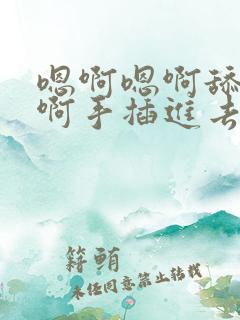 嗯啊嗯啊舔
啊手插进去
籍鲔
未经同意禁止转载